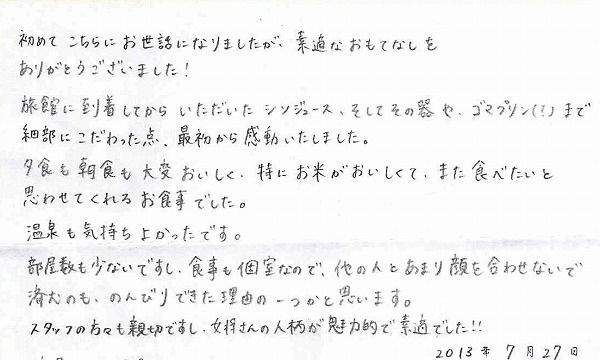 初めて こちらに お世話になりましたが、素適な おもてなしを
ありがとうございました！
旅館に到着してから いただいた シソジュース、そしてその器 や、ゴマプリン(？)まで
細部にこだわった点、最初から感動いたしました。
夕食も朝食も 大変 おいしく、特に お米が おいしくて、また 食べたいと
思わせてくれる お食事でした。
温泉も気持ちよかったです。
部屋数も少ないですし、食事も個室なので、他の人とあまり顔を合わせないで
済むのも、のんびりできた理由の一つかと思います。
スタッフの方々も親切ですし、女将さんの人柄が魅力的で素適でした!!
2013年 7月27日